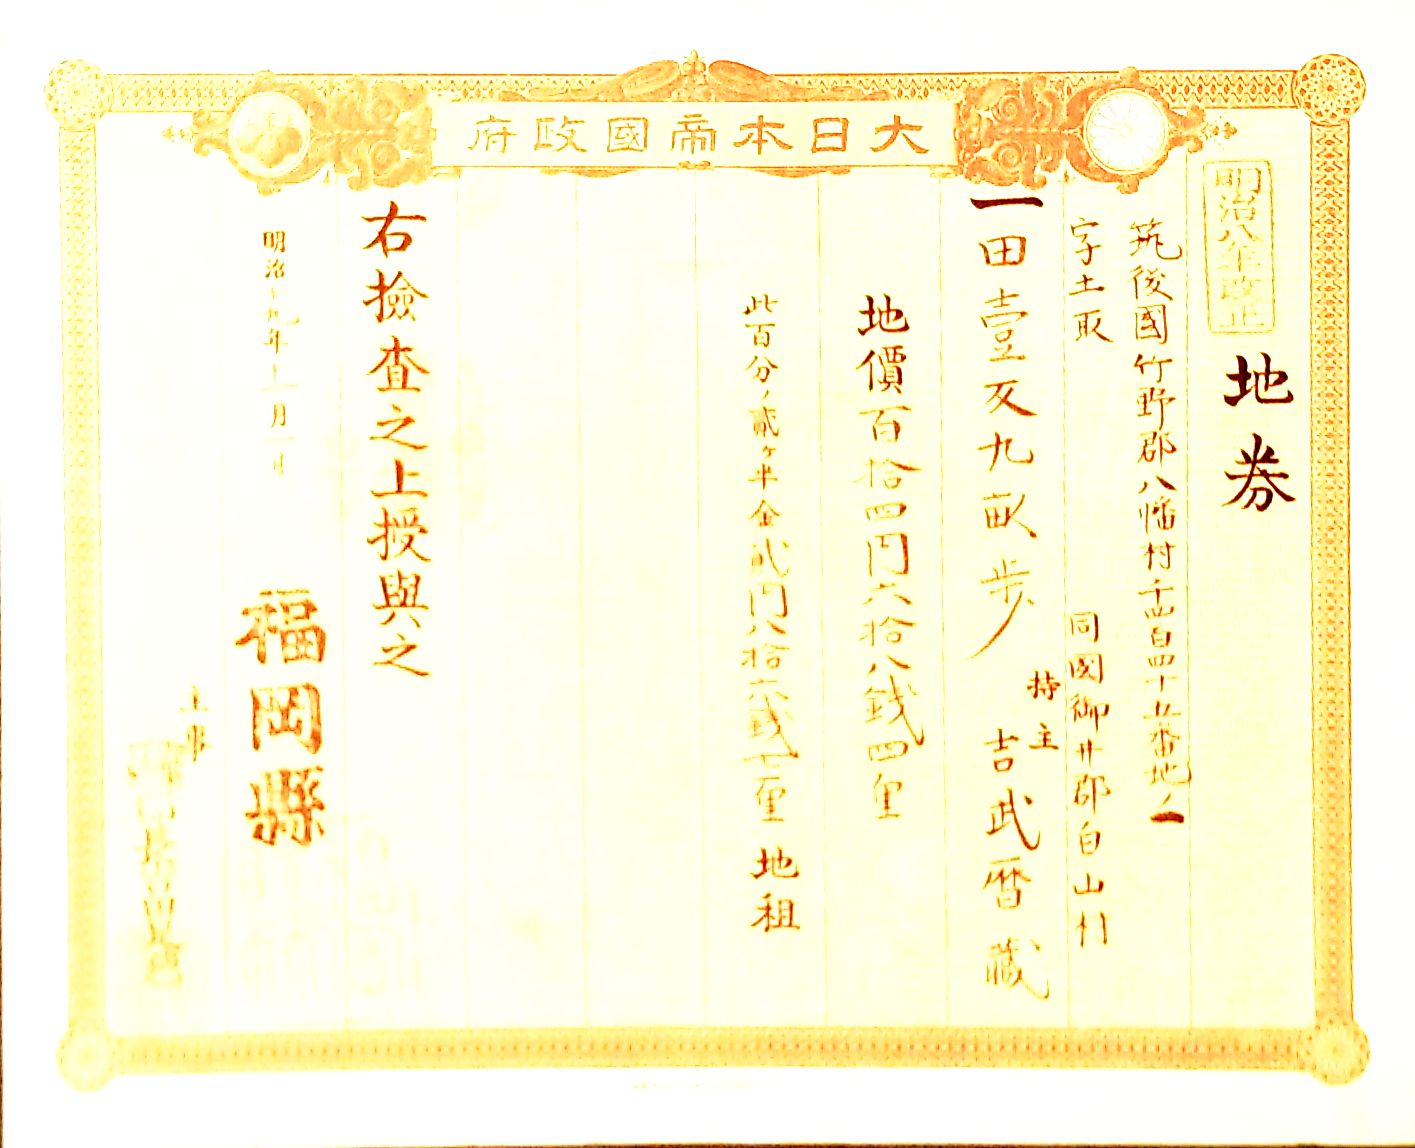 大日本帝國政府
明治八年改正
地券
筑後國竹野郡八幡村千四百四十五番地ノ一
字土取
同國御井郡白山村
一田壹反九畝歩
持主
吉武暦藏
地價百拾四円六拾八銭四厘
此百分ノ貳ケ半金貳円八拾六銭七厘 地租
右撿査之上授與之
明治十九年十一月一日
福岡縣
主事